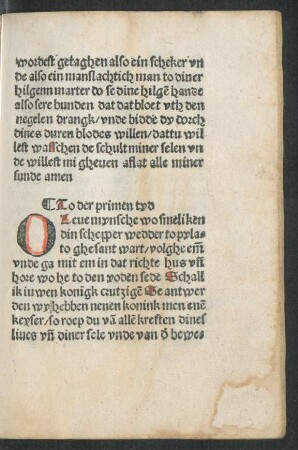 wordest getaghen also ein scheker vn
de also ein manslachtich man to diner
hilgenn marter do se dine hilgē hande
also sere bunden dat dat bloet vth den
negelen drangk/ vnde bidde dy dorch
dines duren blodes willen/dattu wil
lest wasschen de schult miner selen vn
de willest mi gheuen aflat alle miner
sunde amen
⸿ To der primen tyd
O Leue mynsche wo smeliken
din schepper wedder to pyla-
to ghesant wart/volghe em̄
vnde ga mit em in dat richte hus vn̄
hore wo he to den yoden sede Schall
ik iuwen konigk crutzigē Se antwer
den wy hebben nenen konink men enē
keyser/so roep du vā allē kreften dines
liues vn̄ diner sele vnde van d̄ bewe-